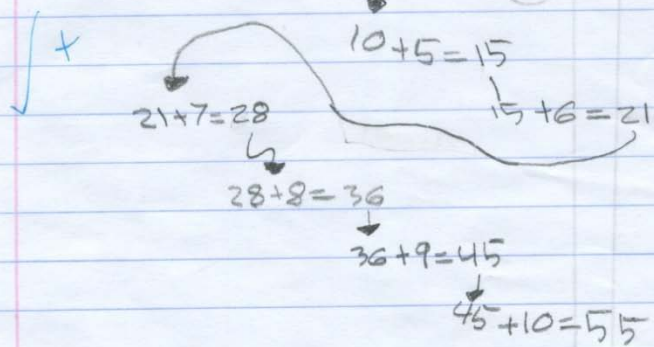 +
10+5=15
15+6=21
21+7=28
28+8=36
36+9=45
45+10=55